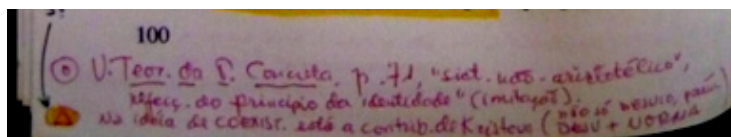 100
V. Teor. da P. Concreta, p. 71, "sist. não-aristotélico",
rejeiç. do princípio da identidade" (imitação),
na ideia de coexist. está a contrib. de Kristeva (não só desvio, porém
DESV + NORMA